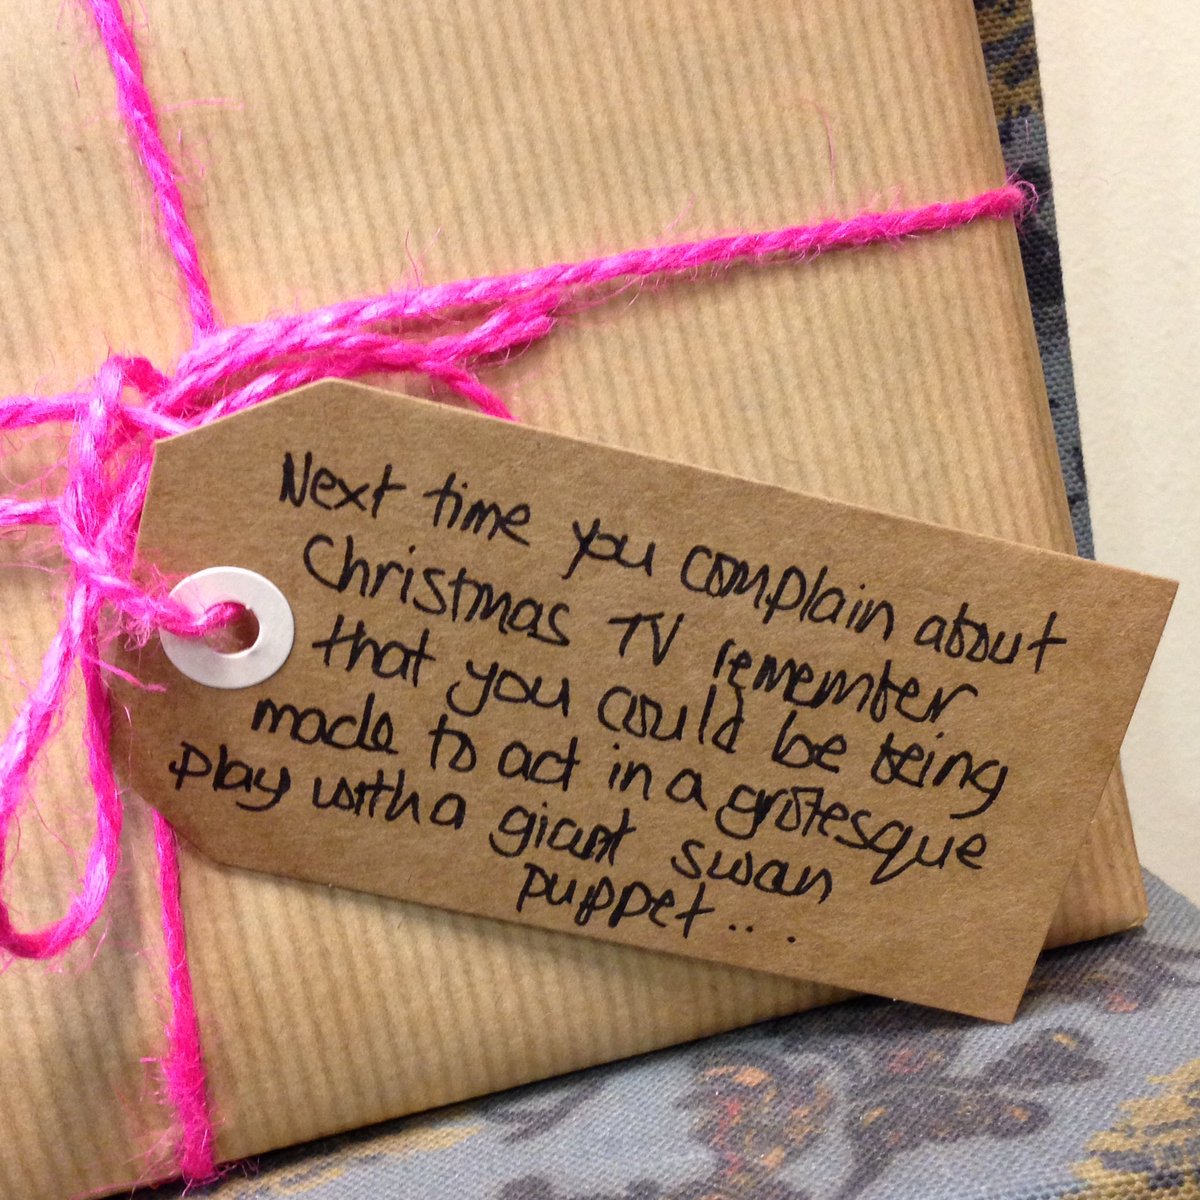 Next time you complain about
Christmas TV remember
that you could be being
made to act in a grotesque
play with a giant swan
puppet...